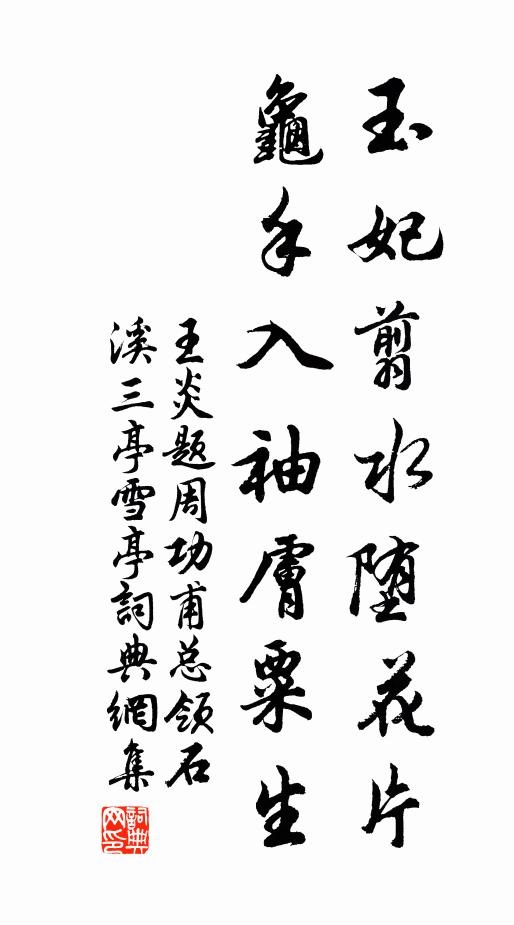 玉妃翦水堕花片
龜手入袖膚粟生
王炎题周功甫总领石
溪三亭雪亭詞典網集
詞典
网印